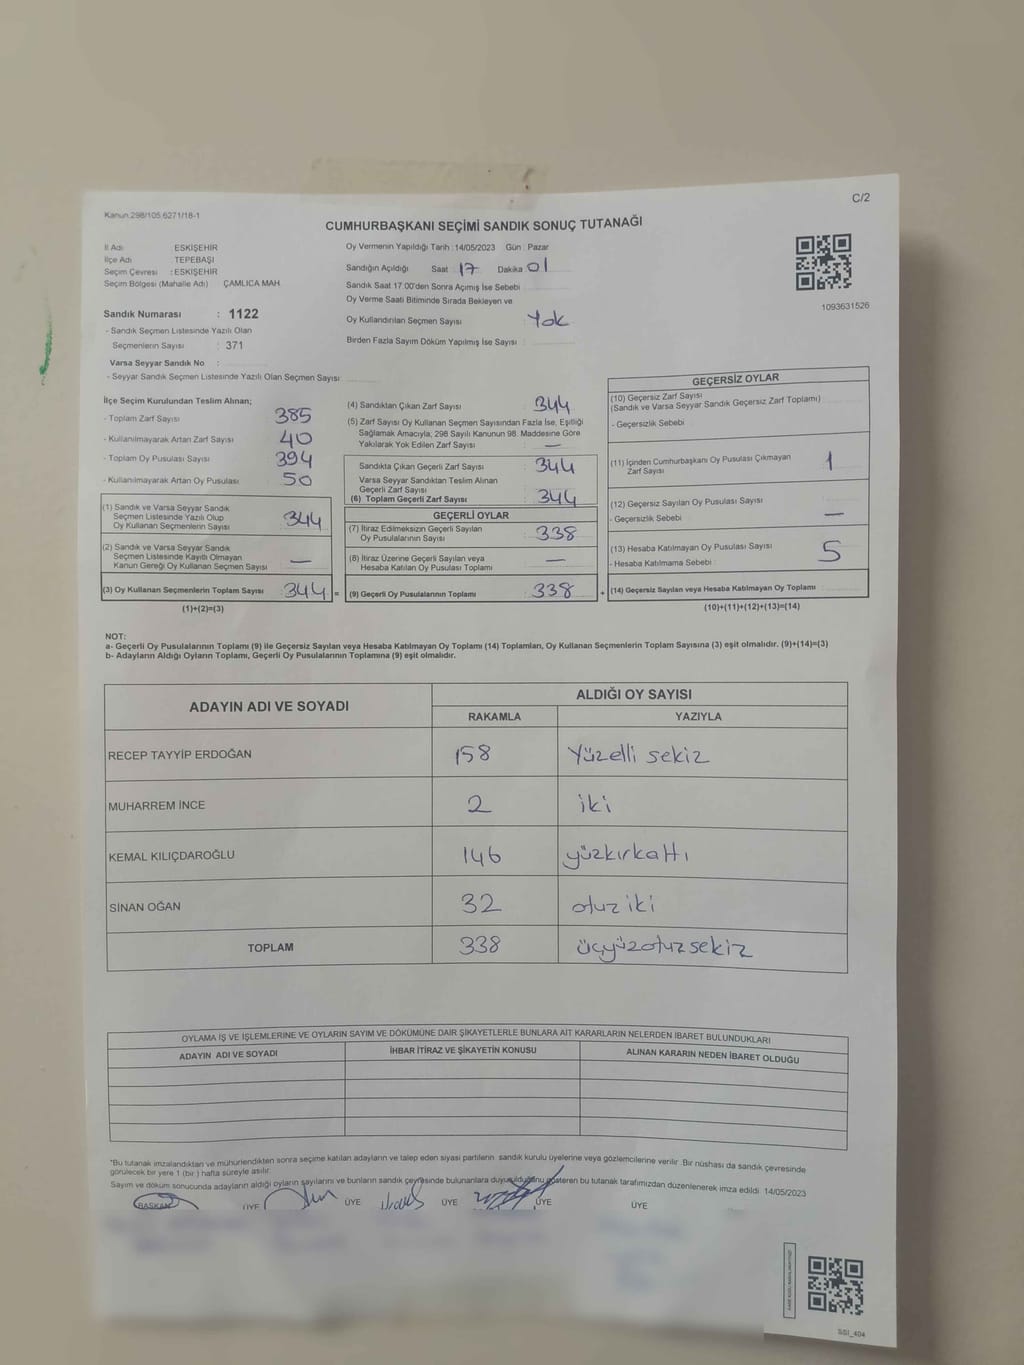 C/2
Kanun.298/105.6271/18-1
CUMHURBAŞKANI SEÇİMİ SANDIK SONUÇ TUTANAĞI
İl Adı ESKİŞEHİR
İlçe Adı TEPEBAŞI
Seçim Çevresi : ESKİŞEHİR
Seçim Bölgesi (Mahalle Adı) ÇAMLICA MAH
Sandık Numarası : 1122
- Sandık Seçmen Listesinde Yazılı Olan
Seçmenlerin Sayısı : 371
Varsa Seyyar Sandık No :
- Seyyar Sandık Seçmen Listesinde Yazılı Olan Seçmen Sayısı
Oy Vermenin Yapıldığı Tarih : 14/05/2023 Gün : Pazar
Sandığın Açıldığı Saat 17 Dakika 01
Sandık Saat 17.00'den Sonra Açımış İse Sebebi
Oy Verme Saati Bitiminde Sırada Bekleyen ve
Oy Kullandırılan Seçmen Sayısı : Yok
Birden Fazla Sayım Döküm Yapılmış İse Sayısı :
1093631526
İlçe Seçim Kurulundan Teslim Alınan;
- Toplam Zarf Sayısı 385
- Kullanılmayarak Artan Zarf Sayısı 40
- Toplam Oy Pusulası Sayısı 394
- Kullanılmayarak Artan Oy Pusulası 50
(1) Sandık ve Varsa Seyyar Sandık
Seçmen Listesinde Yazılı Olup
Oy Kullanan Seçmenlerin Sayısı : 344
(2) Sandık ve Varsa Seyyar Sandık
Seçmen Listesinde Kayıtlı Olmayan
Kanun Gereği Oy Kullanan Seçmen Sayısı : —
(3) Oy Kullanan Seçmenlerin Toplam Sayısı : 344 =
(1)+(2)=(3)
(4) Sandıktan Çıkan Zarf Sayısı : 344
(5) Zarf Sayısı Oy Kullanan Seçmen Sayısından Fazla İse, Eşitliği
Sağlamak Amacıyla; 298 Sayılı Kanunun 98. Maddesine Göre
Yakılarak Yok Edilen Zarf Sayısı : —
Sandıkta Çıkan Geçerli Zarf Sayısı : 344
Varsa Seyyar Sandıktan Teslim Alınan
Geçerli Zarf Sayısı
(6) Toplam Geçerli Zarf Sayısı : 344
GEÇERLİ OYLAR
(7) İtiraz Edilmeksizin Geçerli Sayılan
Oy Pusulalarının Sayısı : 338
(8) İtiraz Üzerine Geçerli Sayılan veya
Hesaba Katılan Oy Pusulası Toplamı : —
(9) Geçerli Oy Pusulalarının Toplamı : 338 +
GEÇERSİZ OYLAR
(10) Geçersiz Zarf Sayısı
(Sandık ve Varsa Seyyar Sandık Geçersiz Zarf Toplamı)
- Geçersizlik Sebebi :
(11) İçinden Cumhurbaşkanı Oy Pusulası Çıkmayan
Zarf Sayısı 1
(12) Geçersiz Sayılan Oy Pusulası Sayısı
- Geçersizlik Sebebi : —
(13) Hesaba Katılmayan Oy Pusulası Sayısı 5
- Hesaba Katılmama Sebebi :
(14) Geçersiz Sayılan veya Hesaba Katılmayan Oy Toplamı :
(10)+(11)+(12)+(13)=(14)
NOT:
a- Geçerli Oy Pusulalarının Toplamı (9) ile Geçersiz Sayılan veya Hesaba Katılmayan Oy Toplamı (14) Toplamları, Oy Kullanan Seçmenlerin Toplam Sayısına (3) eşit olmalıdır. (9)+(14)=(3)
b- Adayların Aldığı Oyların Toplamı, Geçerli Oy Pusulalarının Toplamına (9) eşit olmalıdır.
ADAYIN ADI VE SOYADI ALDIĞI OY SAYISI
RAKAMLA YAZIYLA
RECEP TAYYİP ERDOĞAN 158 Yüzelli sekiz
MUHARREM İNCE 2 iki
KEMAL KILIÇDAROĞLU 146 yüzkırkaltı
SİNAN OĞAN 32 otuz iki
TOPLAM 338 üçyüzotuzsekiz
OYLAMA İŞ VE İŞLEMLERİNE VE OYLARIN SAYIM VE DÖKÜMÜNE DAİR ŞİKAYETLERLE BUNLARA AİT KARARLARIN NELERDEN İBARET BULUNDUKLARI
ADAYIN ADI VE SOYADI İHBAR İTİRAZ VE ŞİKAYETİN KONUSU ALINAN KARARIN NEDEN İBARET OLDUĞU
*Bu tutanak imzalandıktan ve mühürlendikten sonra seçime katılan adayların ve talep eden siyasi partilerin sandık kurulu üyelerine veya gözlemcilerine verilir. Bir nüshası da sandık çevresinde
görülecek bir yere 1 (bir ) hafta süreyle asılır.
Sayım ve döküm sonucunda adayların aldığı oyların sayılarını ve bunların sandık çevresinde bulunanlara duyurulduğunu gösteren bu tutanak tarafımızdan düzenlenerek imza edildi. 14/05/2023
BAŞKAN ÜYE ÜYE ÜYE ÜYE ÜYE
SSI_404